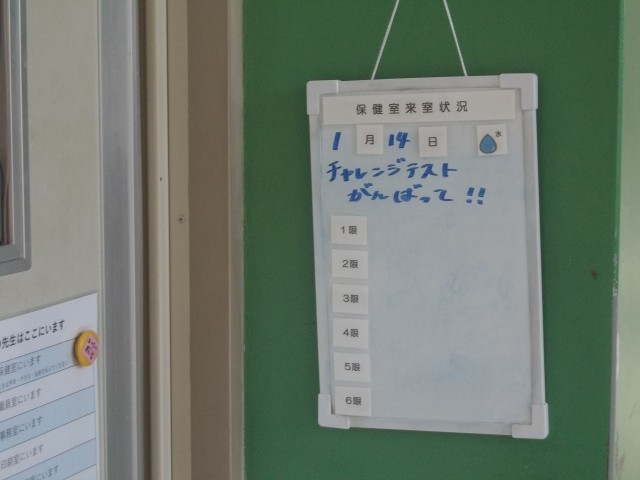 保健室来室状況
1月14日 水
チャレンジテスト
がんばって!!
1限
2限
3限
4限
5限
6限
先生はここにいます
保健室にいます
職員室にいます
事務室にいます
印刷室にいます